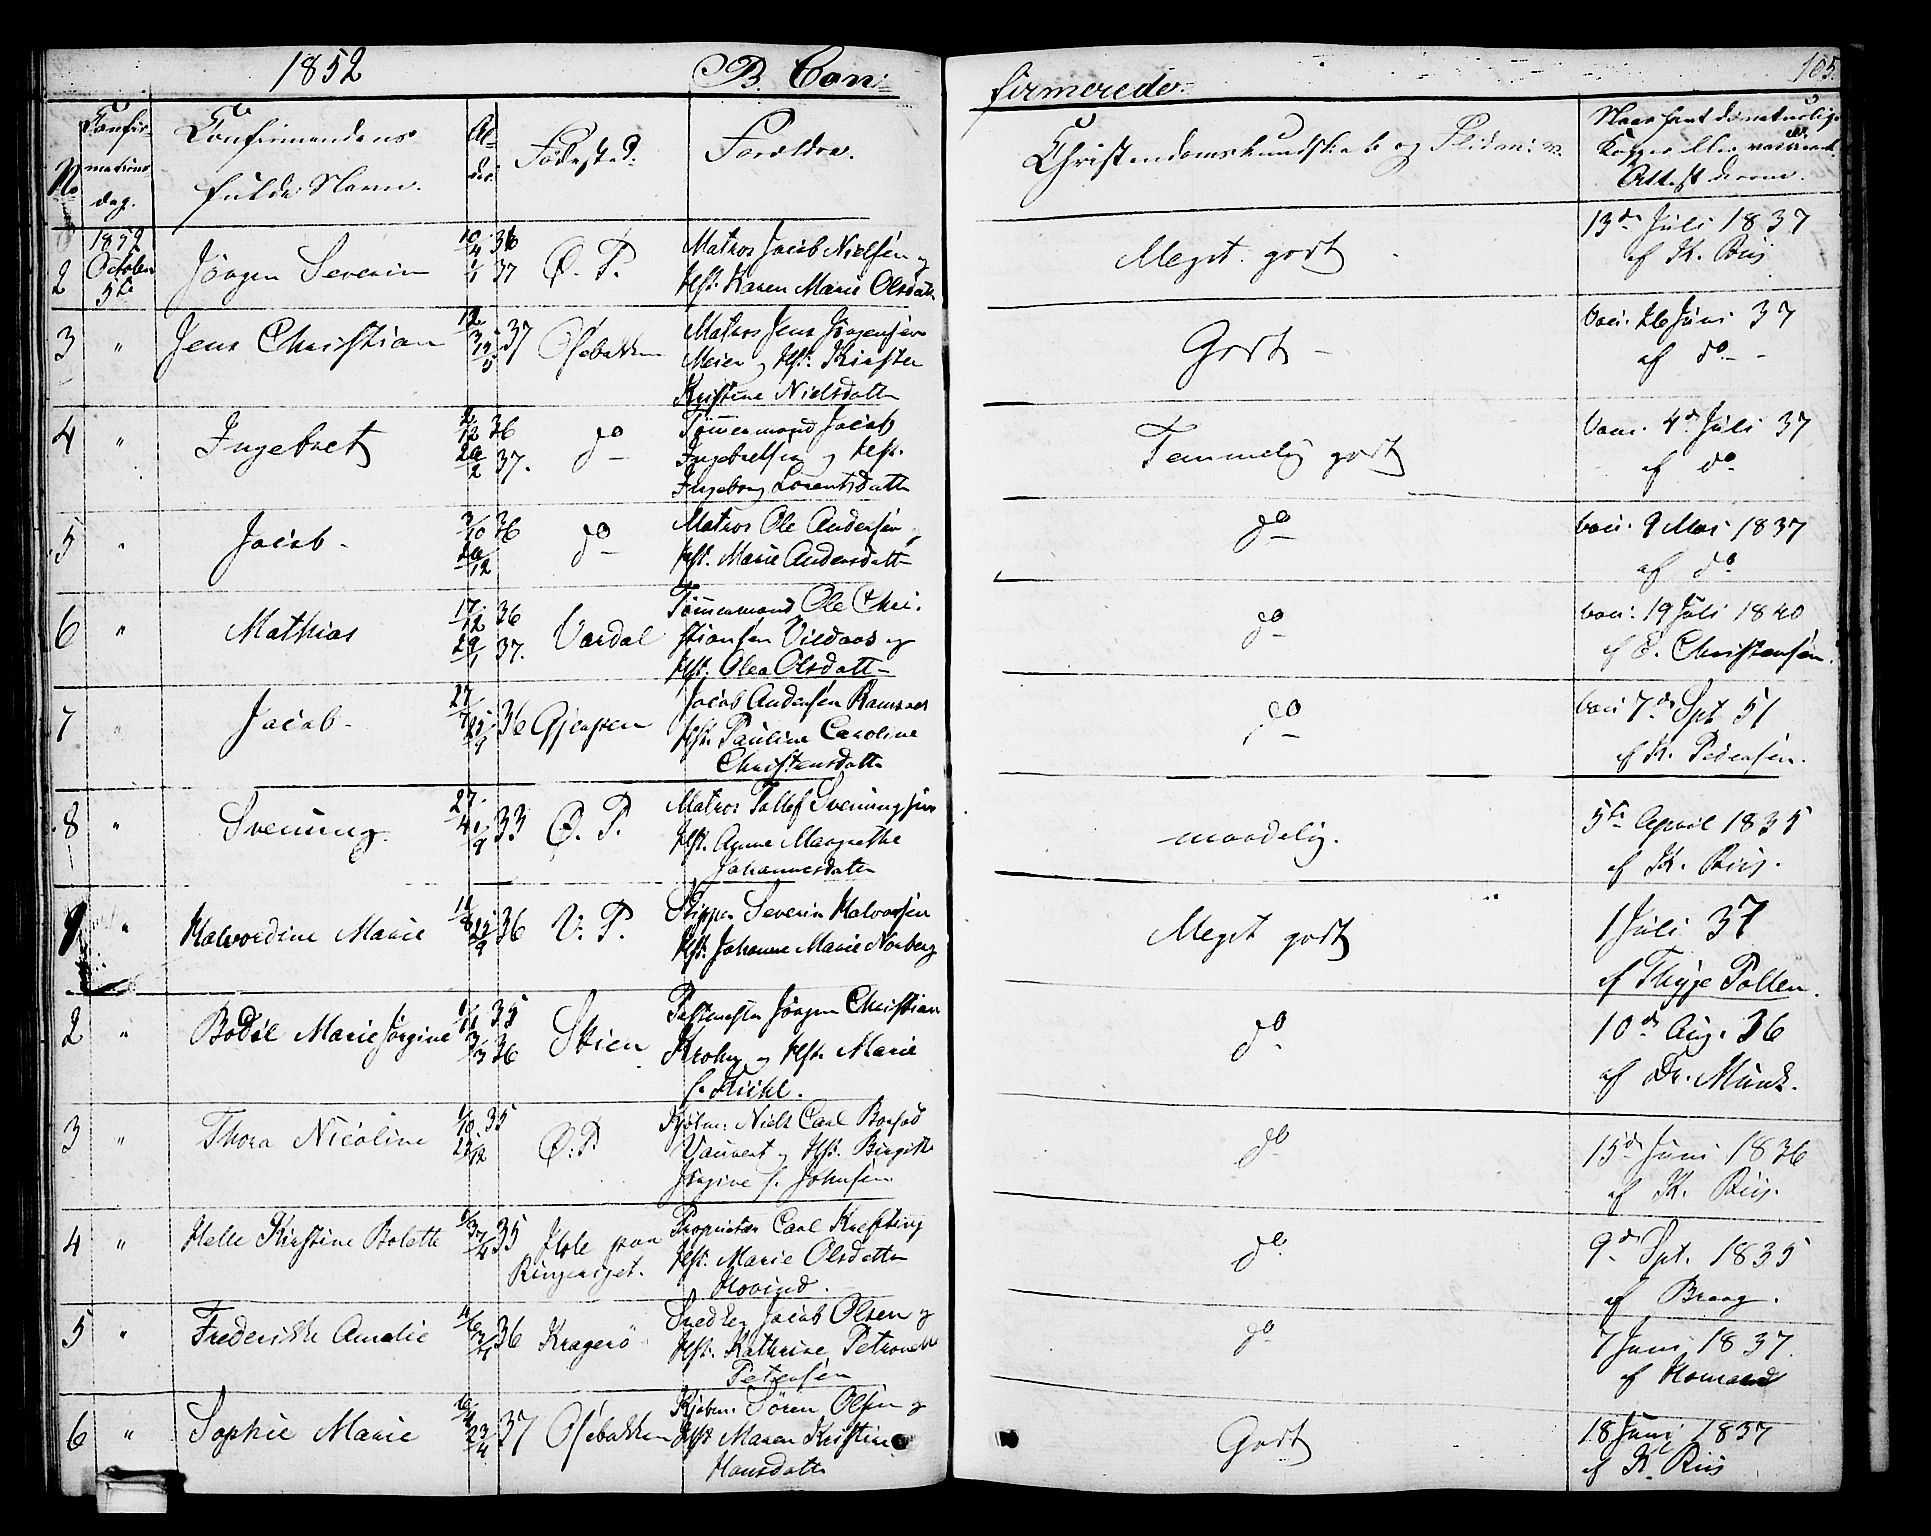 1852 B. Con-
firmerede. 105.
No Confir-
mations
dag. Confirmandens
fulde Navn. Al-
der Fødested. Forældre. Christendomskundskab og Flid m: v. Naar havt de naturlige
Kopper eller vaccineret
Attest derom.
2 1852
October
5te Jørgen Severin 36 37 Ø. P. Matros Jacob Nielsen og
Hst. Karen Marie Olsdatter Meget godt 13de Juli 1837
af K. Riis
3 " Jens Christian 37 Osebakken Matros Jens Jørgensen
Meier og Hst. Kirsten
Kristine Nielsdatter Godt - vacc. Juni 37
af do -
4 " Ingebret 36
37. do Tømmermand Jacob
Ingebretsen og Hst.
Ingeborg Lorentsdatter Temmelig godt vacc. 4de Juli 37
af do
5 " Jacob - 3/10 36 do Matros Ole Andersen og
Hst. Marie Andersdatter do vacc. 9 Mai 1837
af do
6 " Mathias 17/12 36
29/1 37. Vardal Tømmermand Ole Chri-
stiansen Vildaas og
Hst. Olea Olsdatter do vacc. 19 Juli 1840
af E. Christensen.
7 " Jacob - 36 Gjerpen Jacob Andersen Ramsaas
Hst. Pauline Caroline
Christensdatter do vacc 7de Spt 51
af K. Pedersen.
8 " Svenung 33 Ø. P. Matros Tollef Svenungsen
Hst. Anne Margrethe
Johannesdatter maadelig. 5te April 1835
af K. Riis.
1 " Halvordine Marie 36 V. P. Skipper Severin Halvorsen
Hst. Johanne Marie Norberg Meget godt 1 Juli 37
af Thyge Polten.
2 " Bodil Marie Jørgine 35
3/3 36 Skien Postmester Jørgen Christian
Krohg og Hst. Marie
do 10de Aug. 36
af Dr. Munk.
3 " Thora Nicoline 1/10 35 Ø. P. Niels Carl
og Hst. Birgitte
Jørgine f. Johnsen. do 15de Juni 1836
af K. Riis.
4 " Helle Kirstine Bolette 35 Hole paa
Ringeriget. Proprietær Carl Krefting
Hst. Marie Olsdatter
Hovind. do 9de Spt. 1835
af Braag.
5 " Frederikke Amalie 36 Kragerø Snedker Jacob Olsen og
Hst. Kathrine Petronelle
Petersen do 7 Juni 1837.
af Homand
6 " Sophie Marie 23/4 37 Osebakken Kjøbm: Søren Olsen og
Hst Maren Kristine
Hansdatter Godt 18 Juni 1837
af K. Riis